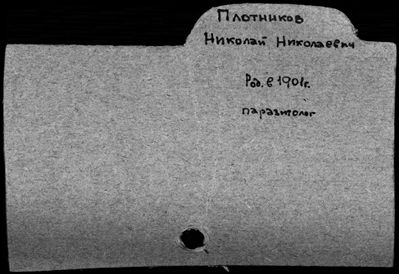 Плотников
Николай Николаевич
Род. в 1901г.
паразитолог